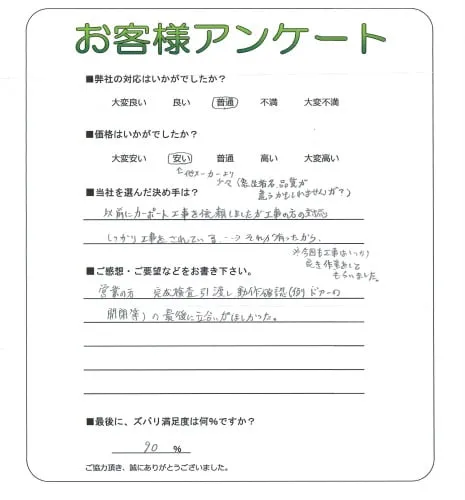 お客様アンケート
■弊社の対応はいかがでしたか?
大変良い 良い 普通 不満 大変不満
■価格はいかがでしたか?
大変安い 安い 普通 高い 大変高い
他メーカーより
少々( 品質が
違うかもしれませんが?)
■当社を選んだ決め手は?
以前にカーポート工事を依頼しましたが工事の方の対応
しっかり工事をされている…→それが有ったから、
※今回も工事はしっかり
作業をして
もらいました。
■ご感想・ご要望などをお書き下さい。
営業の方 完成検査引渡し動作確認(例ドアーの
開閉等)の最後に立合いがほしかった。
■最後に、ズバリ満足度は何%ですか?
90 %
ご協力頂き、誠にありがとうございました。